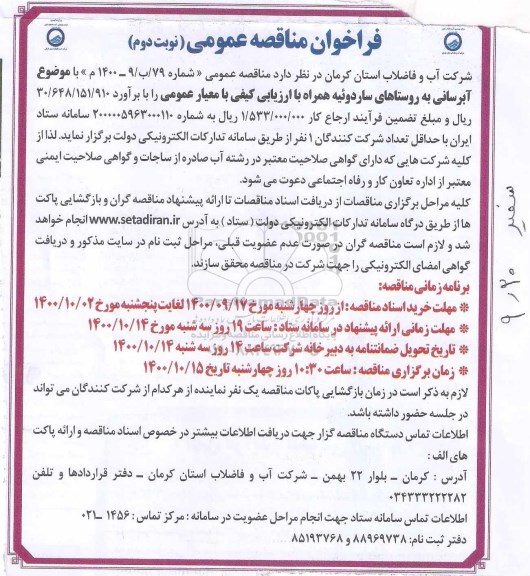 فراخوان مناقصه عمومی (نوبت دوم)
شرکت آب و فاضلاب استان کرمان در نظر دارد مناقصه عمومی « شماره ۷۹/ب/۹ ـ ۱۴۰۰ م » با موضوع
آبرسانی به روستاهای ساردوئیه همراه با ارزیابی کیفی با معیار عمومی را با برآورد ۳۰/۶۴۸/۱۵۱/۹۱۰
ریال و مبلغ تضمین فرآیند ارجاع کار ۱/۵۳۳/۰۰۰/۰۰۰ ریال به شماره ۲۰۰۰۰۰۵۹۶۳۰۰۰۱۱۰ سامانه ستاد
ایران با حداقل تعداد شرکت کنندگان ۱ نفر از طریق سامانه تدارکات الکترونیکی دولت برگزار نماید. لذا از
کلیه شرکت هایی که دارای گواهی صلاحیت معتبر در رشته آب صادره از ساجات و گواهی صلاحیت ایمنی
معتبر از اداره تعاون کار و رفاه اجتماعی دعوت می شود.
کلیه مراحل برگزاری مناقصات از دریافت اسناد مناقصات تا ارائه پیشنهاد مناقصه گران و بازگشایی پاکت
ها از طریق درگاه سامانه تدارکات الکترونیکی دولت ( ستاد ) به آدرس www.setadiran.ir انجام خواهد
شد و لازم است مناقصه گران در صورت عدم عضویت قبلی، مراحل ثبت نام در سایت مذکور و دریافت
گواهی امضای الکترونیکی را جهت شرکت در مناقصه محقق سازند.
برنامه زمانی مناقصه:
* مهلت خرید اسناد مناقصه : از روز چهارشنبه مورخ ۱۴۰۰/۰۹/۱۷ لغایت پنجشنبه مورخ ۱۴۰۰/۱۰/۰۲
* مهلت زمانی ارائه پیشنهاد در سامانه ستاد : ساعت ۱۹ روز سه شنبه مورخ ۱۴۰۰/۱۰/۱۴
* تاریخ تحویل ضمانتنامه به دبیرخانه شرکت: ساعت ۱۴ روز سه شنبه ۱۴۰۰/۱۰/۱۴
* زمان برگزاری مناقصه : ساعت ۱۰:۳۰ روز چهارشنبه تاریخ ۱۴۰۰/۱۰/۱۵
لازم به ذکر است در زمان بازگشایی پاکات مناقصه یک نفر نماینده از هر کدام از شرکت کنندگان می تواند
در جلسه حضور داشته باشد.
اطلاعات تماس دستگاه مناقصه گزار جهت دریافت اطلاعات بیشتر در خصوص اسناد مناقصه و ارائه پاکت
های الف :
آدرس : کرمان ـ بلوار ۲۲ بهمن ـ شرکت آب و فاضلاب استان کرمان ـ دفتر قراردادها و تلفن
۰۳۴۳۳۲۲۲۲۸۲
اطلاعات تماس سامانه ستاد جهت انجام مراحل عضویت در سامانه : مرکز تماس : ۱۴۵۶ ـ ۰۲۱
دفتر ثبت نام: ۸۸۹۶۹۷۳۸ و ۸۵۱۹۳۷۶۸
۹٫۳۰